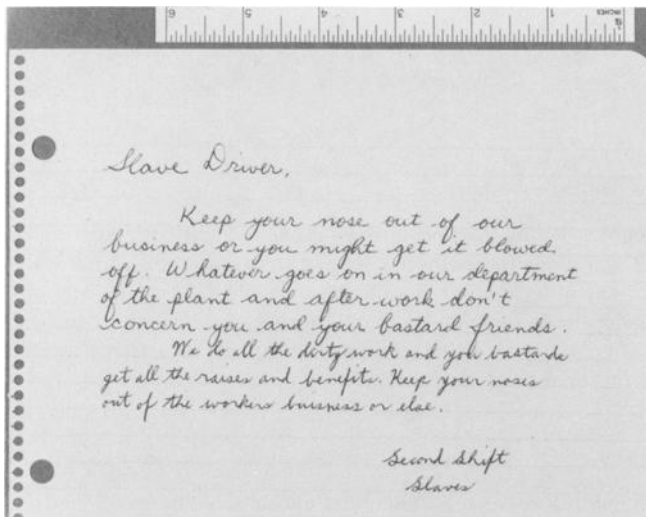 6 5 4 3 2 1 INCHES
Slave Driver,
Keep your nose out of our
business or you might get it blowed
off. Whatever goes on in our department
of the plant and after work don't
concern you and your bastard friends.
We do all the dirty work and you bastards
get all the raises and benefits. Keep your noses
out of the workers buisness or else.
Second Shift
Slaves